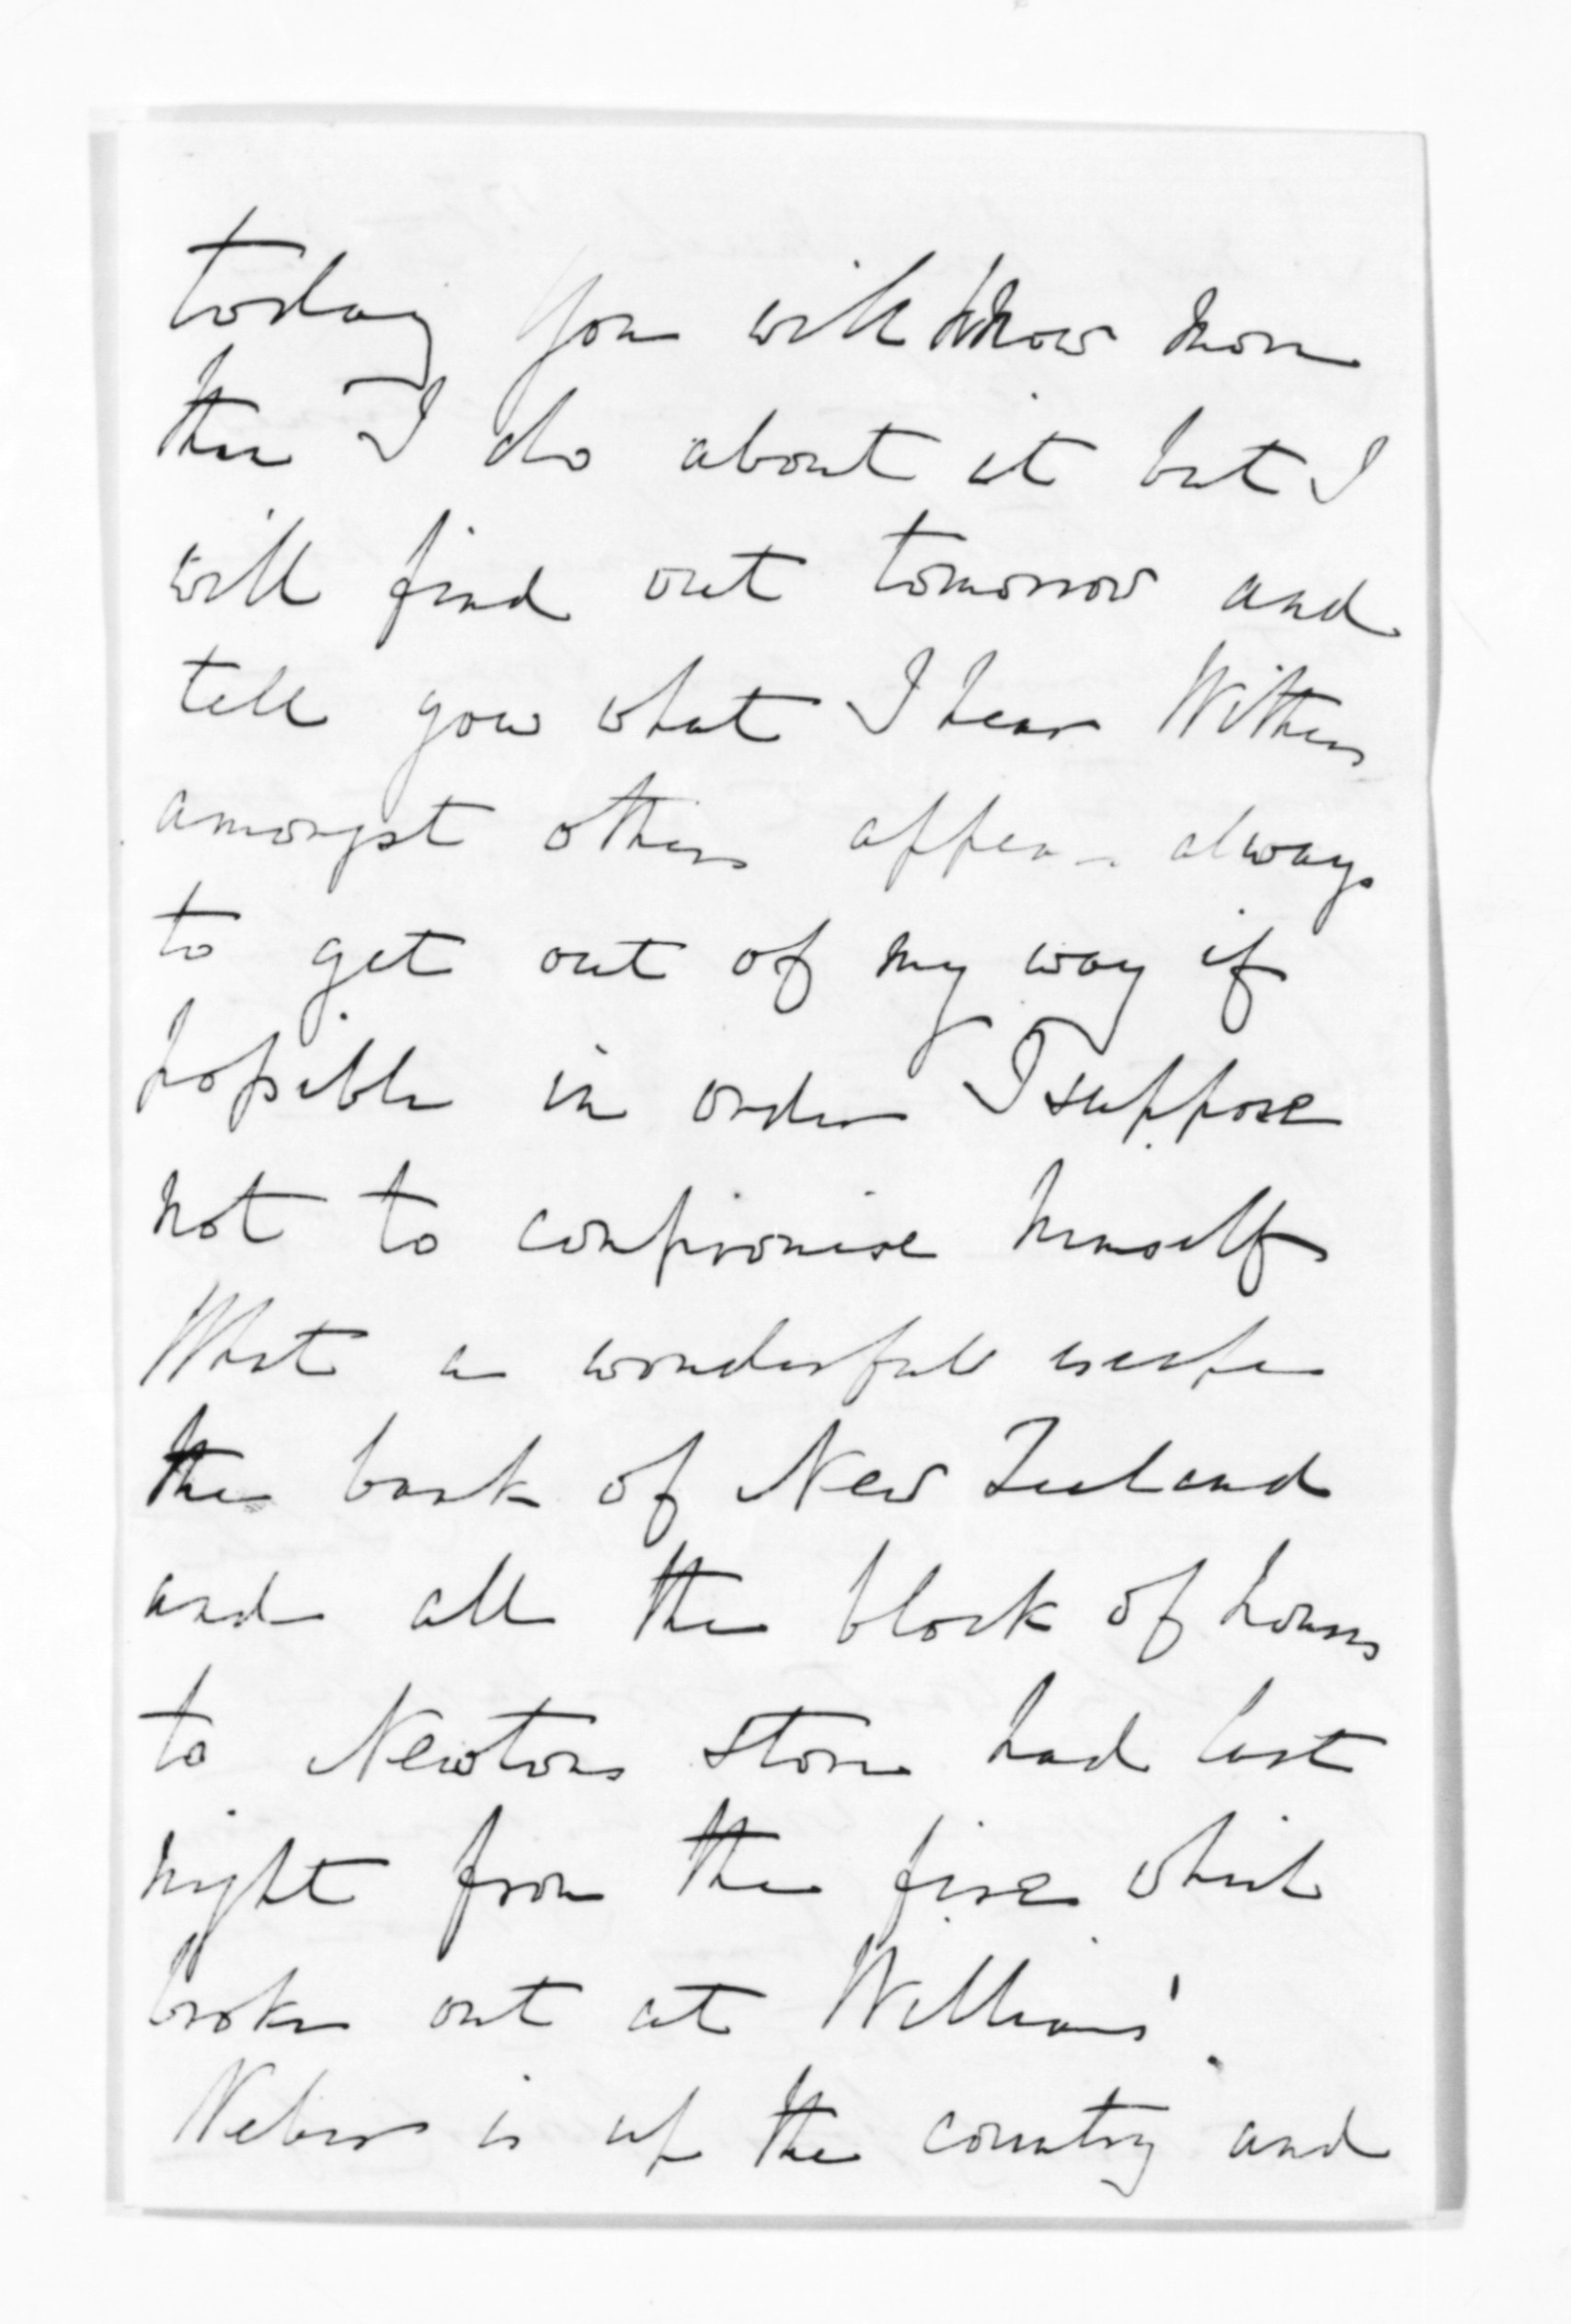 today You will know more
than I do about it but I
will find out tomorrow and
tell you what I hear Withers
amongst others appears always
to get out of my way if
possible in order I suppose
not to compromise himself
What a wonderful escape
the bank of New Zealand
and all the block of houses
to Newtons store had last
night from the fire which
broke out at Williams'.
is up the country and